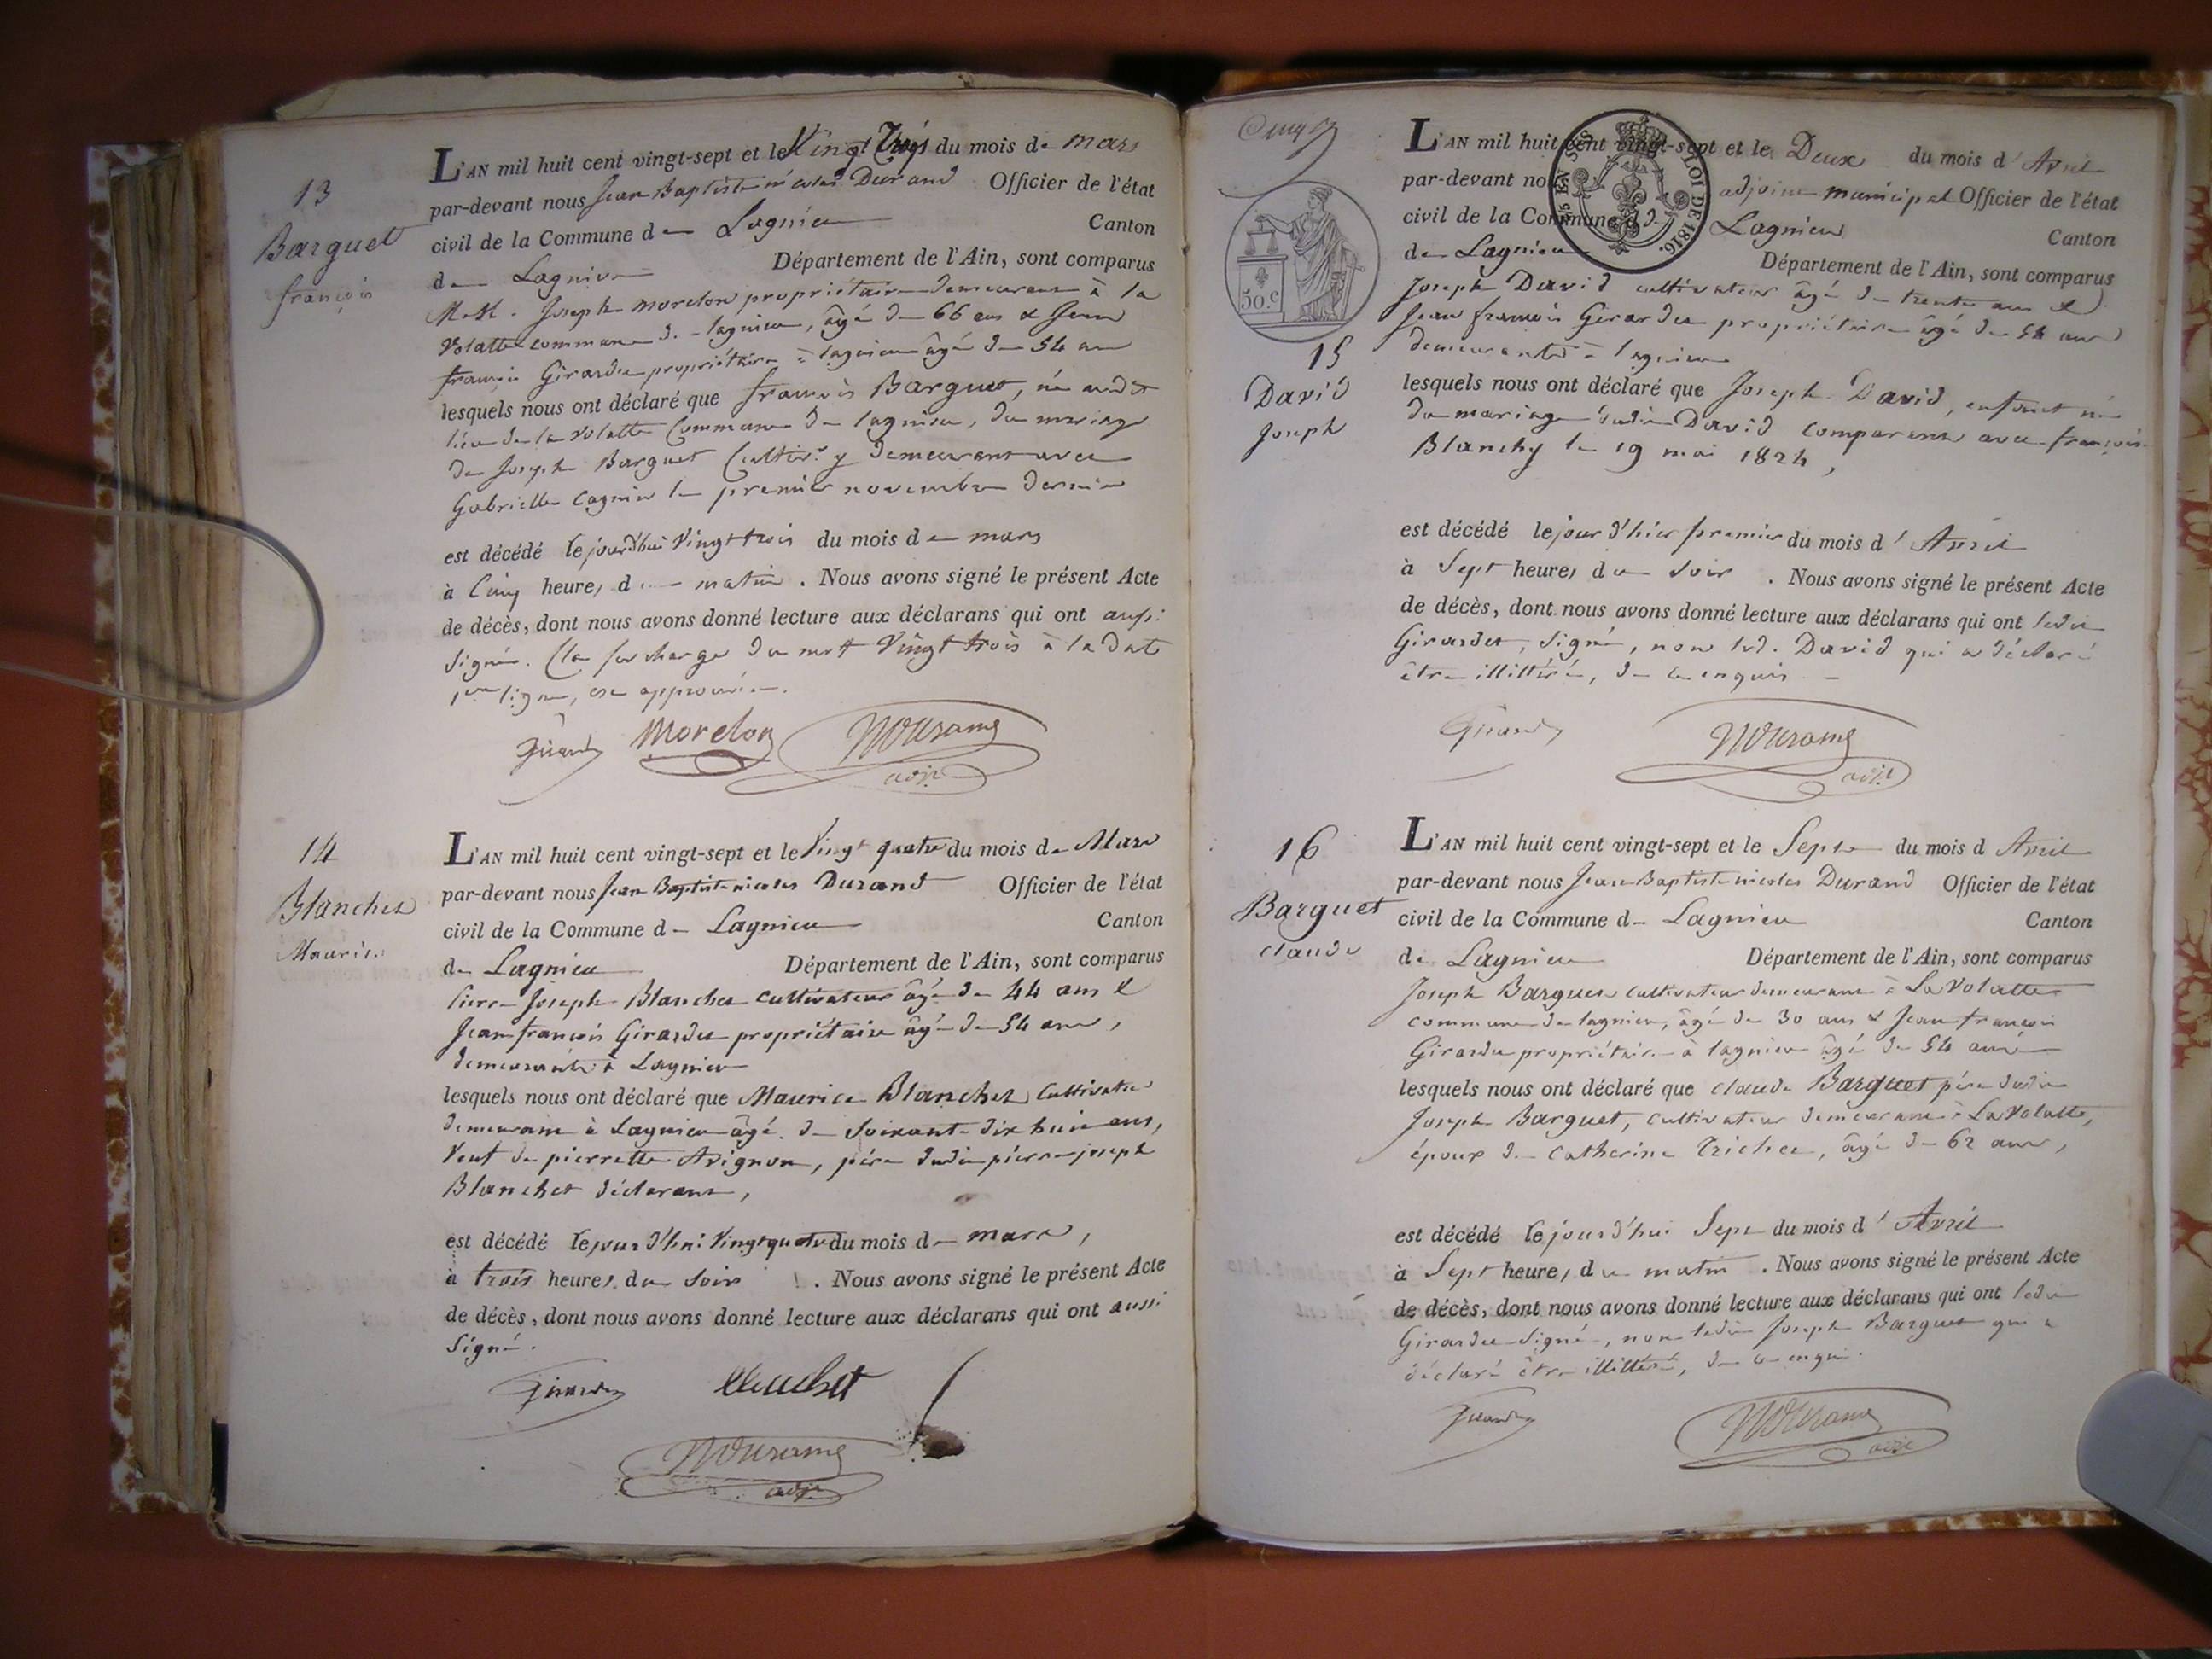 13
Barguet
françois
L'AN mil huit cent vingt-sept et le Vingt Trois du mois de mars
par-devant nous Jean Baptiste nicolas Durand Officier de l'état
civil de la Commune de Lagnieu Canton
de Lagnieu Département de l'Ain, sont comparus
Joseph morelon propriétaire demeurant à la
Volatte commune de lagnieu, âgé de 66 ans & Jean
françois Girardet propriétaire à lagnieu âgé de 54 ans
lesquels nous ont déclaré que françois Barguet, né audit
lieu de la Volatte Commune de lagnieu, du mariage
de Joseph Barguet Cultivr. y demeurant avec
Gabrielle Cagnin le premier novembre dernier
est décédé le jourd'hui Vingt trois du mois de mars
à Cinq heures d matin. Nous avons signé le présent Acte
de décès, dont nous avons donné lecture aux déclarans qui ont aussi
signé. (la surcharge du mot Vingt trois à la date
1ere ligne, est approuvée.
Girardet Morelon NDurand
adjt
14
Blanchet
Maurice
L'AN mil huit cent vingt-sept et le Vingt quatre du mois de Mars
par-devant nous Jean Baptiste nicolas Durand Officier de l'état
civil de la Commune de Lagnieu Canton
de Lagnieu Département de l'Ain, sont comparus
Pierre Joseph Blanchet cultivateur âgé de 44 ans &
Jean françois Girardet propriétaire âgé de 54 ans,
demeurants à Lagnieu
lesquels nous ont déclaré que Maurice Blanchet Cultivateur
demeurant à Lagnieu âgé de soixante dix huit ans,
Veuf de pierrette Avignon, père dudit pierre joseph
Blanchet déclarant,
est décédé le jour d'hui Vingt quatre du mois de mars,
à trois heures du soir. Nous avons signé le présent Acte
de décès, dont nous avons donné lecture aux déclarans qui ont aussi
Signé.
Girardet Blanchet
NDurand
adjt
50.c
15
David
Joseph
LOI DE 1816.
L'AN mil huit cent vingt-sept et le Deux du mois d'Avril
par-devant nous adjoint municipal Officier de l'état
civil de la Commune de Lagnieu Canton
de Lagnieu Département de l'Ain, sont comparus
Joseph David cultivateur âgé de trente ans &
Jean françois Girardet propriétaire âgé de 54 ans
demeurants à lagnieu
lesquels nous ont déclaré que Joseph David, enfant né
du mariage dudit David comparant avec françoise
Blanchy le 19 mai 1824,
est décédé le jour d'hier premier du mois d'Avril
à Sept heures du soir. Nous avons signé le présent Acte
de décès, dont nous avons donné lecture aux déclarans qui ont ledit
Girardet, signé, non led. David qui a déclaré
être illittéré, de ce enquis
Girardet NDurand
adjt
16
Barguet
claude
L'AN mil huit cent vingt-sept et le Sept du mois d Avril
par-devant nous Jean Baptiste nicolas Durand Officier de l'état
civil de la Commune de Lagnieu Canton
de Lagnieu Département de l'Ain, sont comparus
Joseph Barguet cultivateur demeurant à La Volatte
commune de lagnieu, âgé de 30 ans & Jean françois
Girardet propriétaire à lagnieu âgé de 54 ans
lesquels nous ont déclaré que claude Barguet père dudit
Joseph Barguet, cultivateur demeurant à La Volatte,
époux de Catherine Trichet, âgé de 62 ans,
est décédé le jourd'hui Sept du mois d'Avril
à Sept heures du matin. Nous avons signé le présent Acte
de décès, dont nous avons donné lecture aux déclarans qui ont ledit
Girardet signé, non ledit Joseph Barguet qui a
déclaré être illittéré, de ce enquis.
Girardet NDurand
adjt